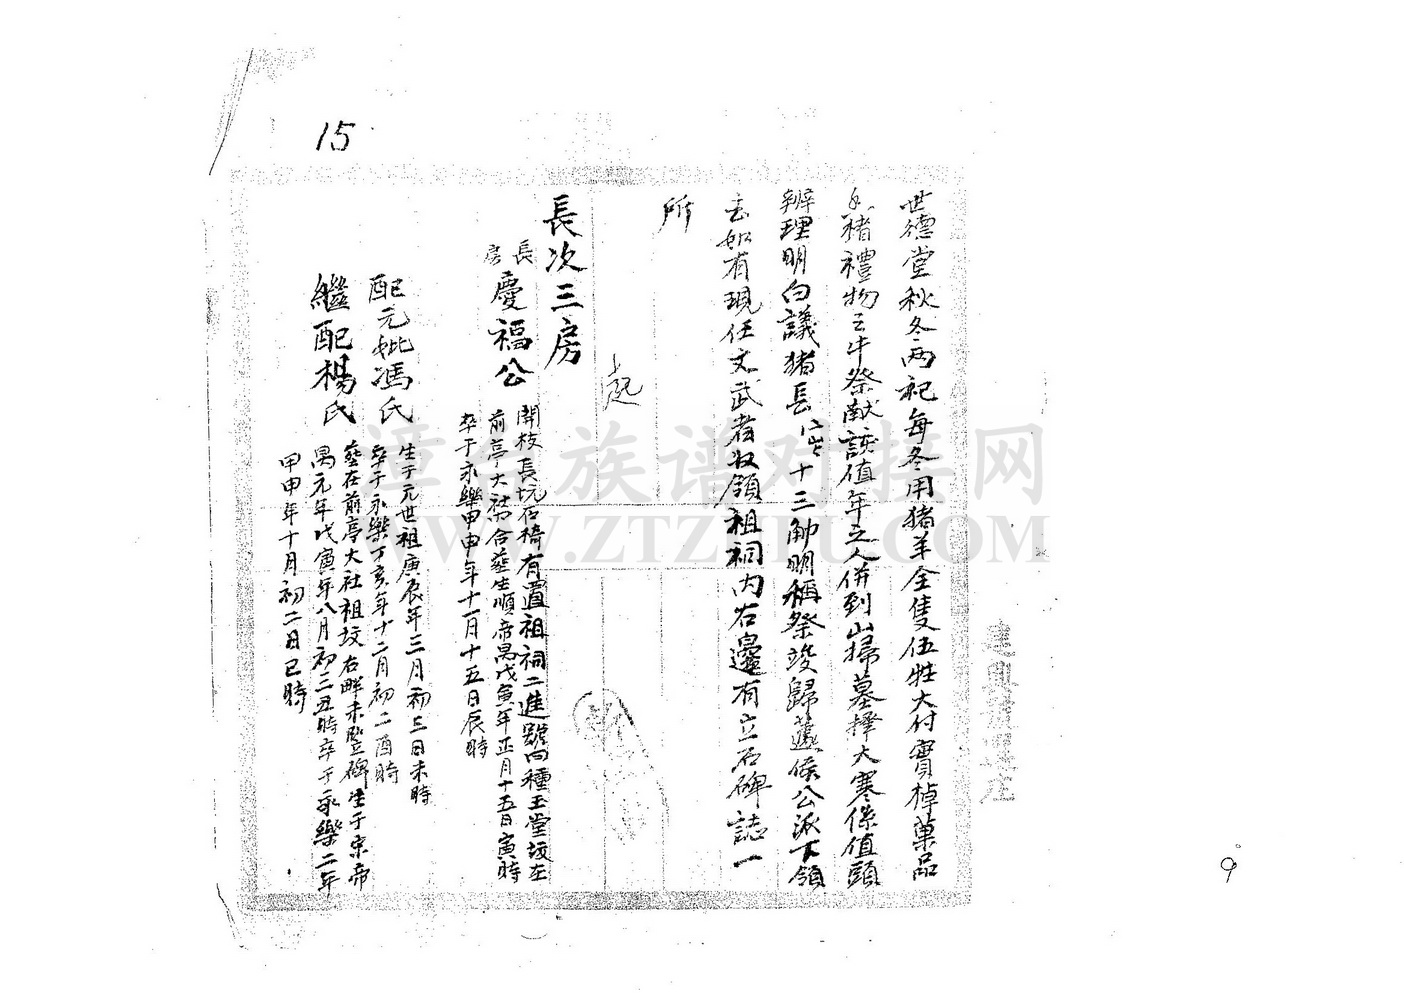 15
世德堂秋冬两祀每冬用猪羊全隻伍牲大付實棹菓品
猪禮物三牛祭献該值年之人併到山掃墓擇大寒係值頭
辦理明白議猪長 十三觔明稱祭竣歸蘆候公派下領
去如有現任文武者収領祖祠内右邊有立石碑誌一
所
起
長次三房
長房
慶福公
開枝長坑石椅有置祖祠二進號曰種玉堂坟在
前亭大社合葬生順帝戊寅年正月十五日寅時
卒于永樂甲申年十一月十五日辰時
配元妣馮氏
生于元世祖庚辰年三月初三日未時
卒于永樂丁亥年十二月初二酉時
繼配楊氏
葬在前亭大社祖坟右畔未竪碑生于宗帝
昺元年戊寅年八月初三丑時卒于永樂二年
甲申年十月初二日巳時
漳台族谱对接网
WWW.ZTZPU.COM
9